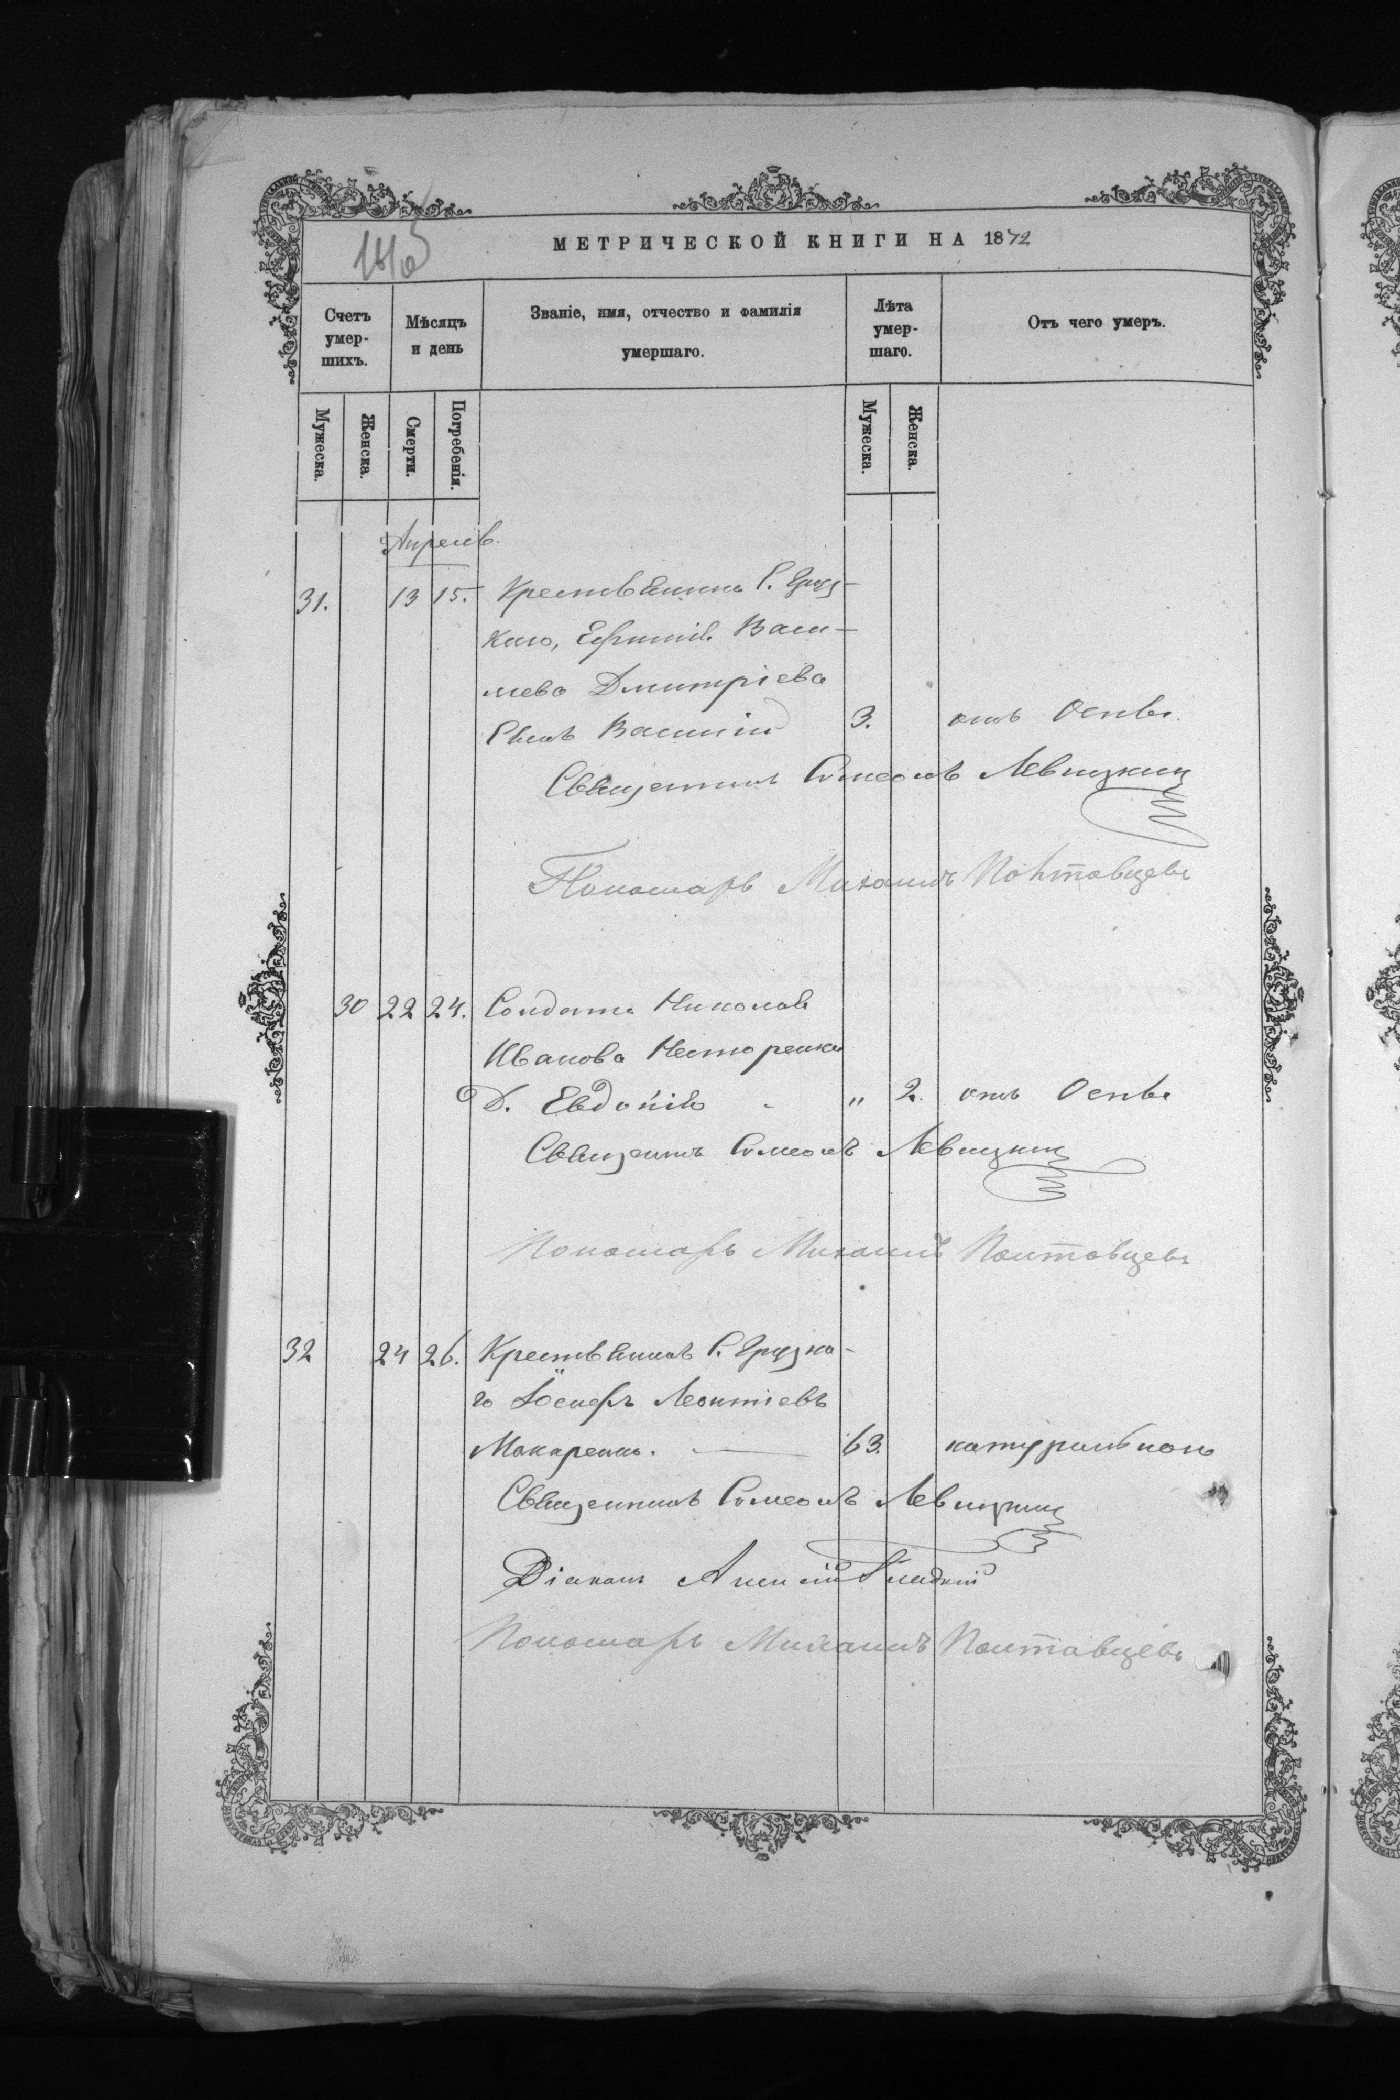 МЕТРИЧЕСКОЙ КНИГИ НА 1872
Счетъ умер-шихъ.
Мѣсяцъ и день
Званіе, имя, отчество и фамилія умершаго.
Лѣта умер-шаго.
Отъ чего умеръ.
Мужеска.
Женска.
Смерти.
Погребенія.
Мужеска.
Женска.
Апрель.
31. 13 15. Крестьянинъ С. Груз-
каго, Ефимій Васи-
ліева Дмитріева
Сынъ Василій 3. отъ Оспы.
Священникъ Симеонъ Левицкій
Пономарь Михаилъ Полтавцевъ
30 22 24. Солдата Николая
Иванова Нестеренка
Д. Евдокія " 2. отъ Оспы
Священникъ Симеонъ Левицкій
Пономарь Михаилъ Полтавцевъ
32 24 26. Крестьянинъ С. Грузка-
го Іосифъ Леонтіевъ
Макаренко. 63. натурально
Священникъ Симеонъ Левицкій
Діаконъ Алексій
Пономарь Михаилъ Полтавцевъ